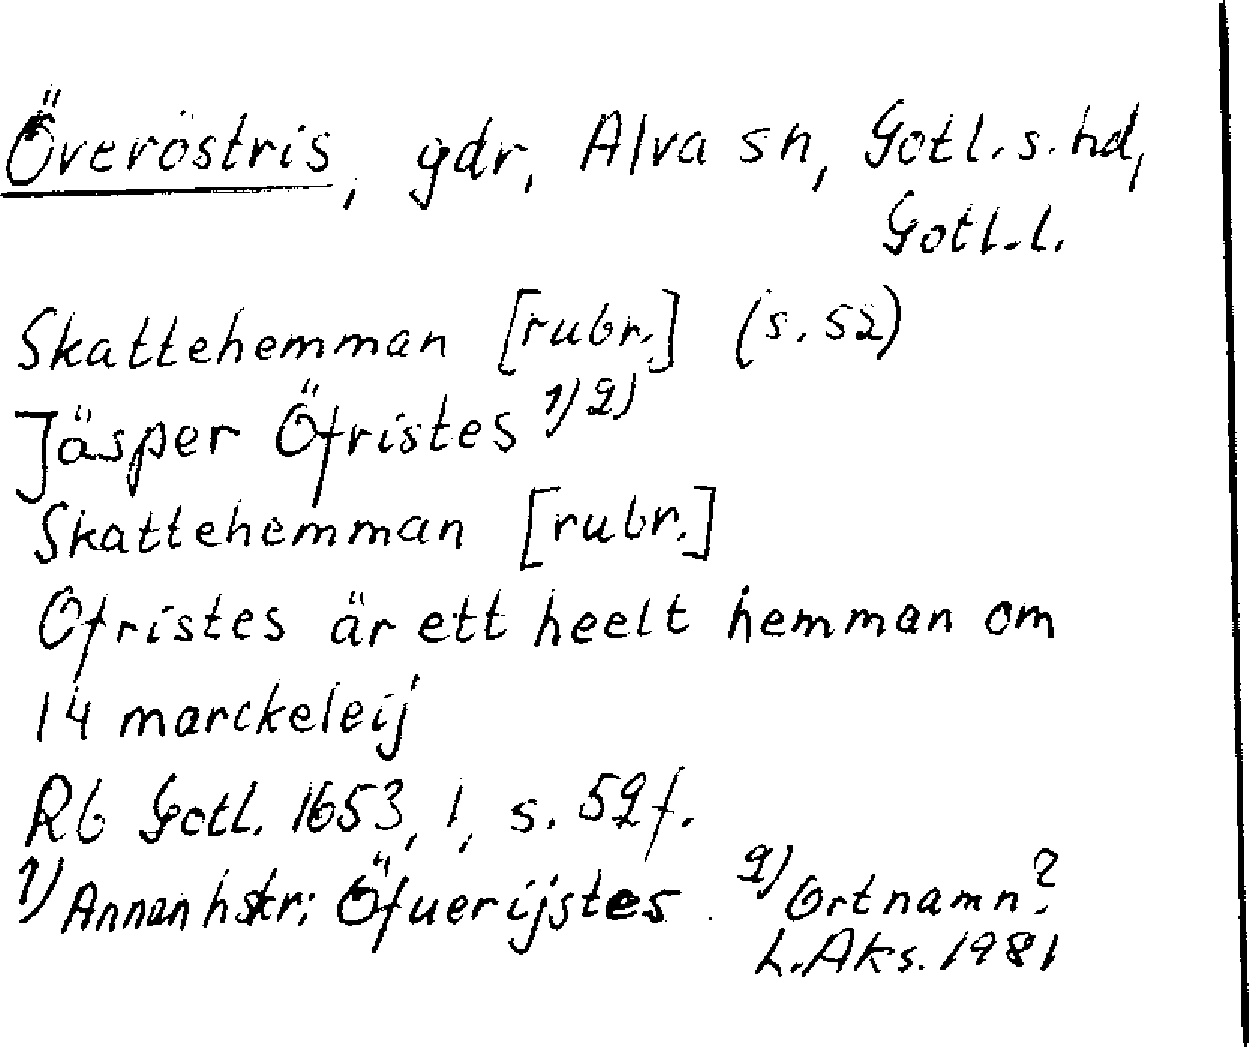 Överöstris, gdr, Alva sn, Gotl. s. hd,
Gotl. l.
Skattehemman [rubr.] (s. 52)
Jäsper Öfristes 1) 2)
Skattehemman [rubr.]
Ofristes är ett heelt hemman om
14 marckeleij
Rb Gotl. 1653, 1, s. 52 f.
1) Annan hskr: Öfuerijstes. 2) Ortnamn?
L. Aks. 1981